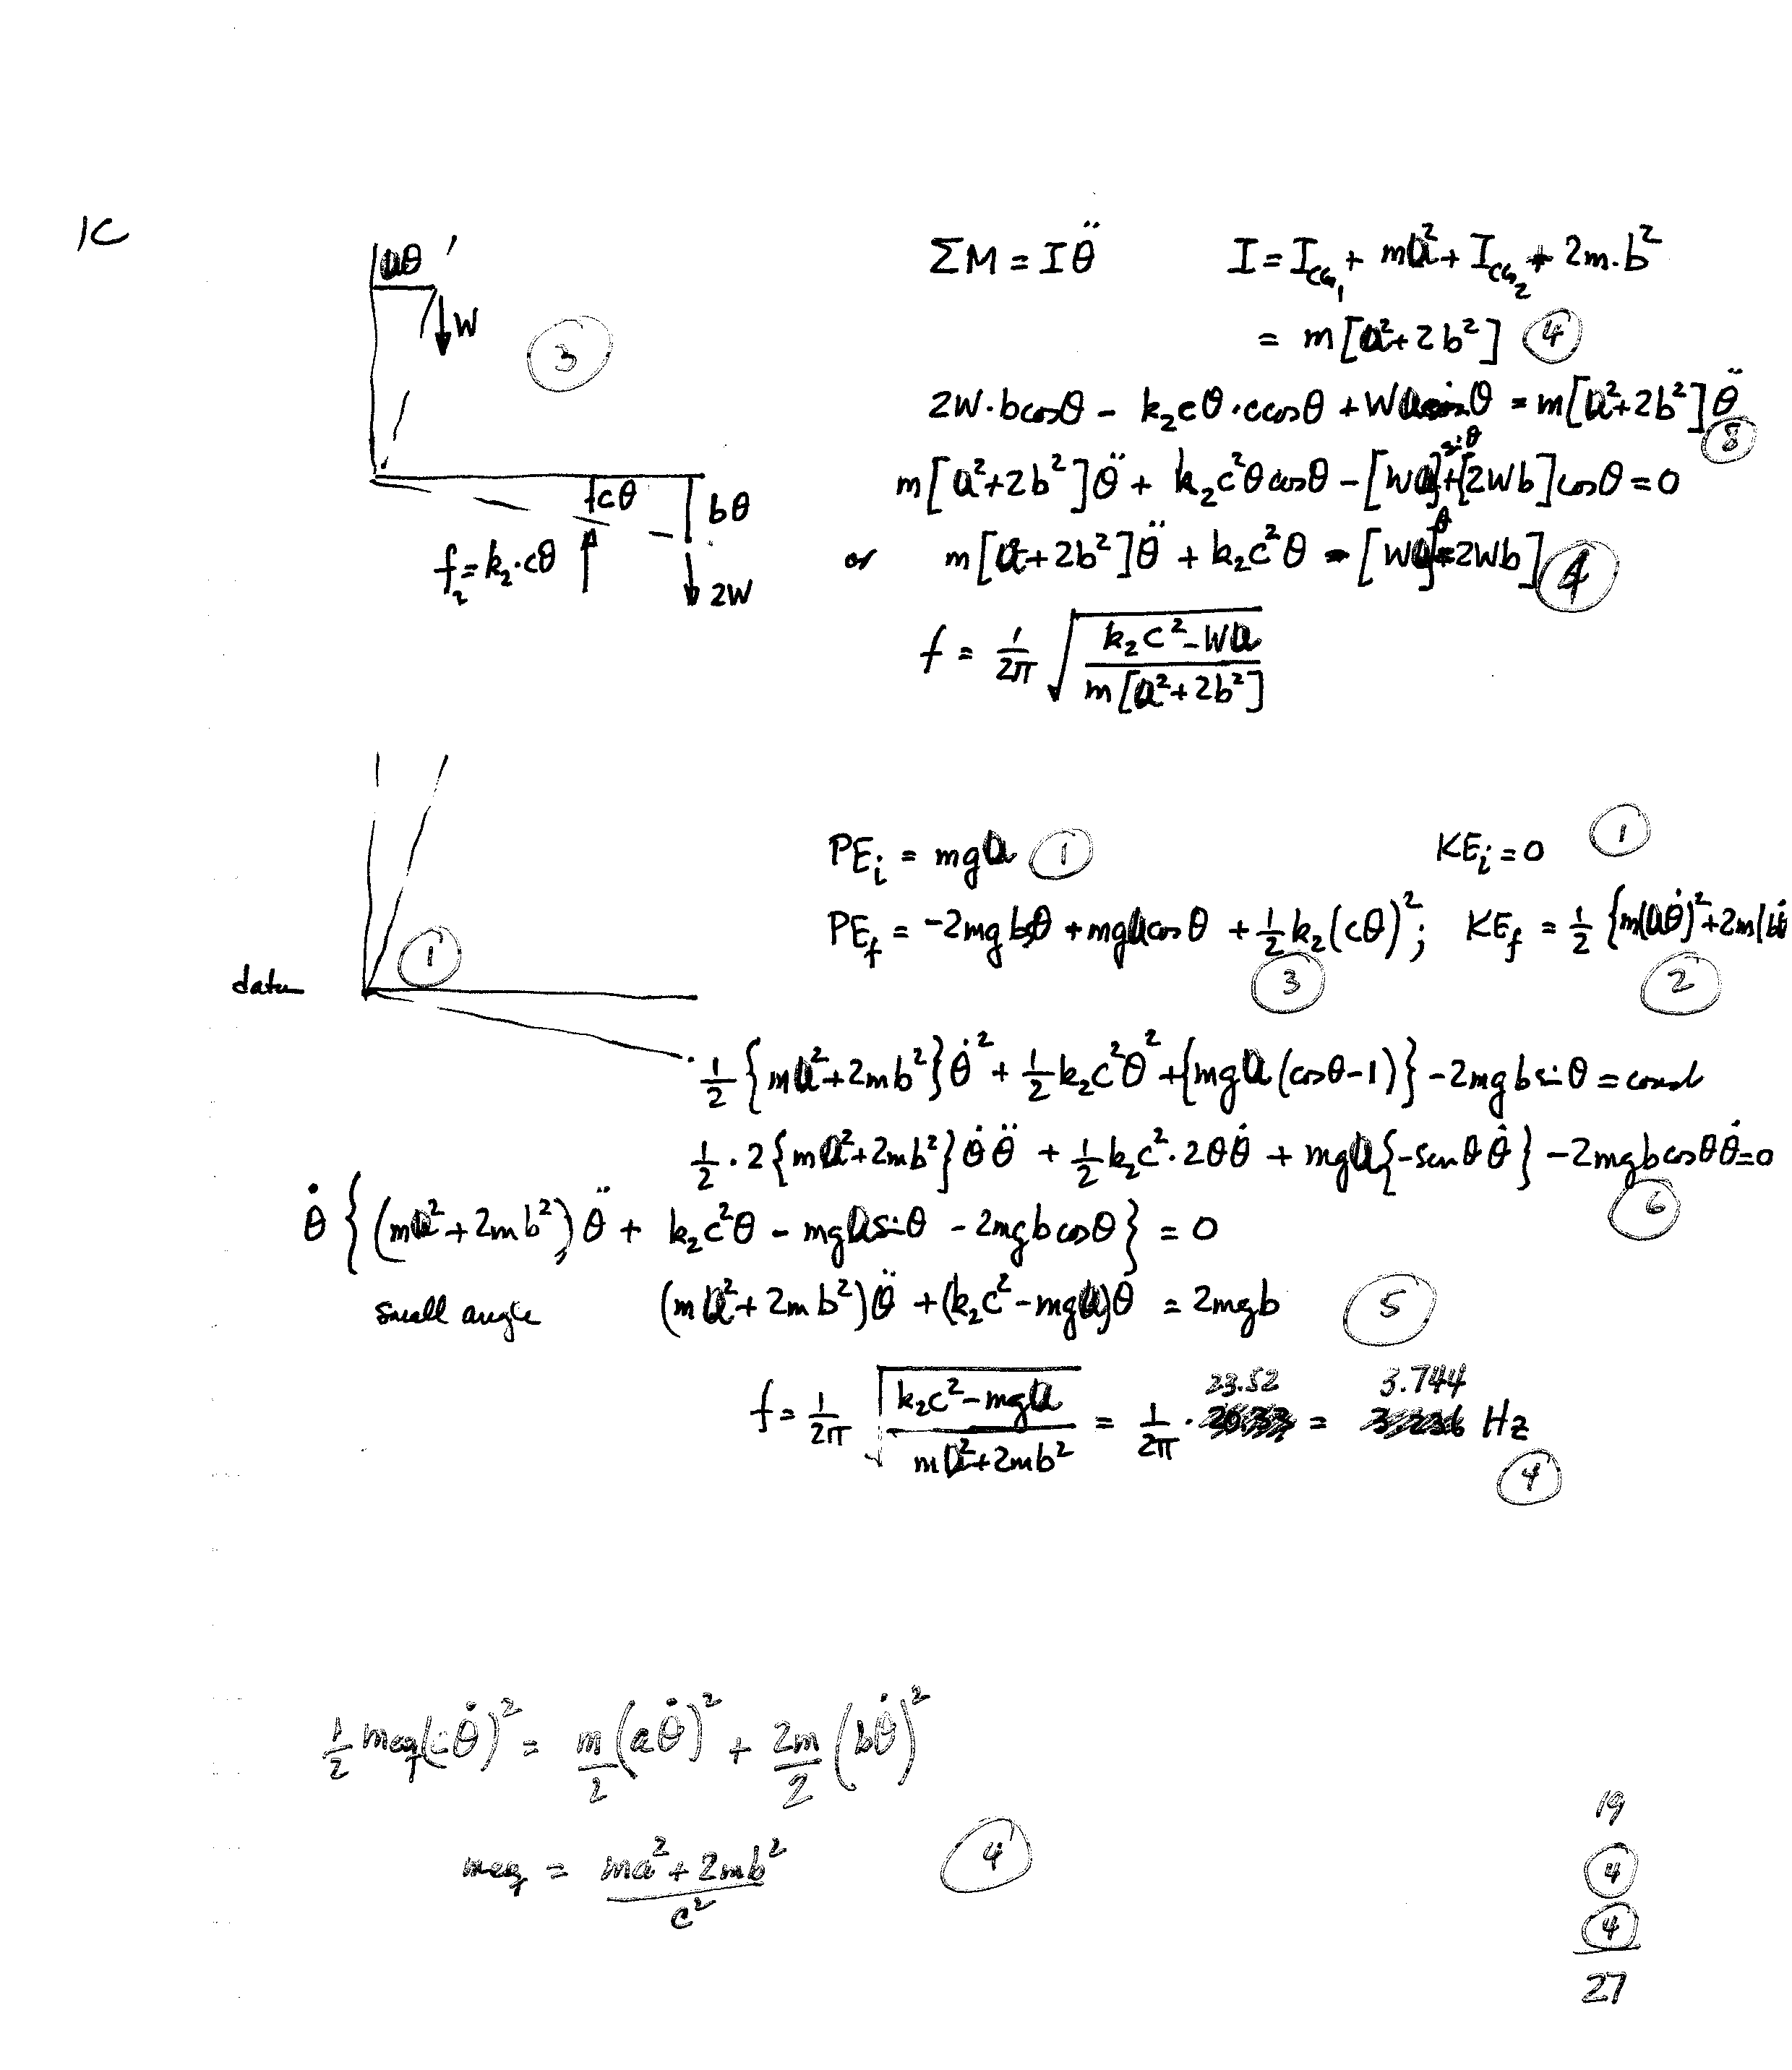 1C
aθ
W
③
cθ
bθ
f₂ = k₂·cθ
2W
ΣM = Iθ̈    I = I_CG₁ + ma² + I_CG₂ + 2m·b²
= m[a²+2b²] ④
2W·bcosθ − k₂cθ·ccosθ + Wa sinθ = m[a²+2b²]θ̈ ⑧
m[a²+2b²]θ̈ + k₂c²θcosθ − [Wa]sinθ + [2Wb]cosθ = 0
or m[a+2b²]θ̈ + k₂c²θ = [Wa]θ + 2Wb] ④
f = 1/2π √((k₂c² − Wa)/(m[a²+2b²]))
PEᵢ = mga ①    KEᵢ = 0 ①
PE_f = −2mg bsθ + mga cosθ + ½k₂(cθ)²; ③ KE_f = ½{m(aθ̇)² + 2m(bθ̇ ②
①
datum
½{ma²+2mb²}θ̇² + ½k₂c²θ² + {mga(cosθ−1)} − 2mgb sinθ = const
½·2{ma²+2mb²}θ̇θ̈ + ½k₂c²·2θθ̇ + mga{−sinθ θ̇} − 2mgb cosθ θ̇ = 0 ⑥
θ̇{(ma²+2mb²)θ̈ + k₂c²θ − mga sinθ − 2mgb cosθ} = 0
small angle (ma²+2mb²)θ̈ + (k₂c²−mga)θ = 2mgb ⑤
f = 1/2π √((k₂c²−mga)/(ma²+2mb²)) = 1/2π · 23.52 = 3.744 Hz ④
½ meq(cθ̇)² = m/2 (aθ̇)² + 2m/2 (bθ̇)²
meq = (ma²+2mb²)/c² ④
19
④
④
27